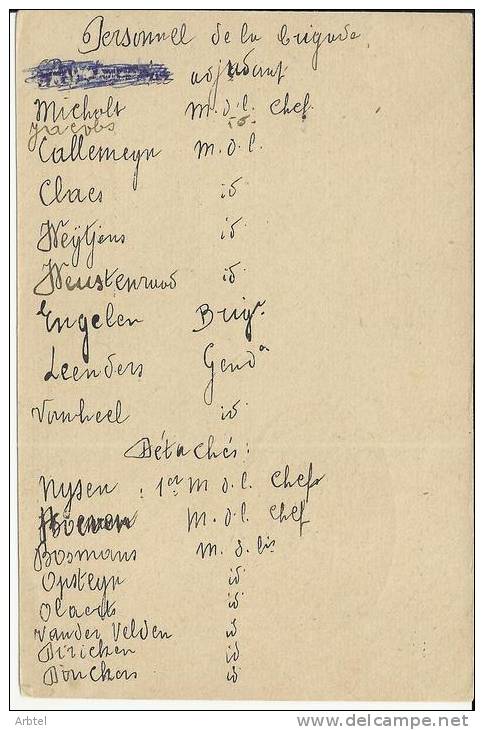 Personnel de la brigade
adjudant
Micholt M.d.l. Chef
Jacobs id.
Callemeyn M.d.l.
Claes id
Weytjens id
Weustenraad id
Engelen Brigr.
Leenders Gend
Vanheel id
Détachés:
Nysen : 1er M d.l. Chef
M.d.l Chef
Bosmans M.d.lis
Opsteyn id
Olaerts id
Vander Velden id
Diricken id
Donckers id
Arbtel
www.delcampe.net